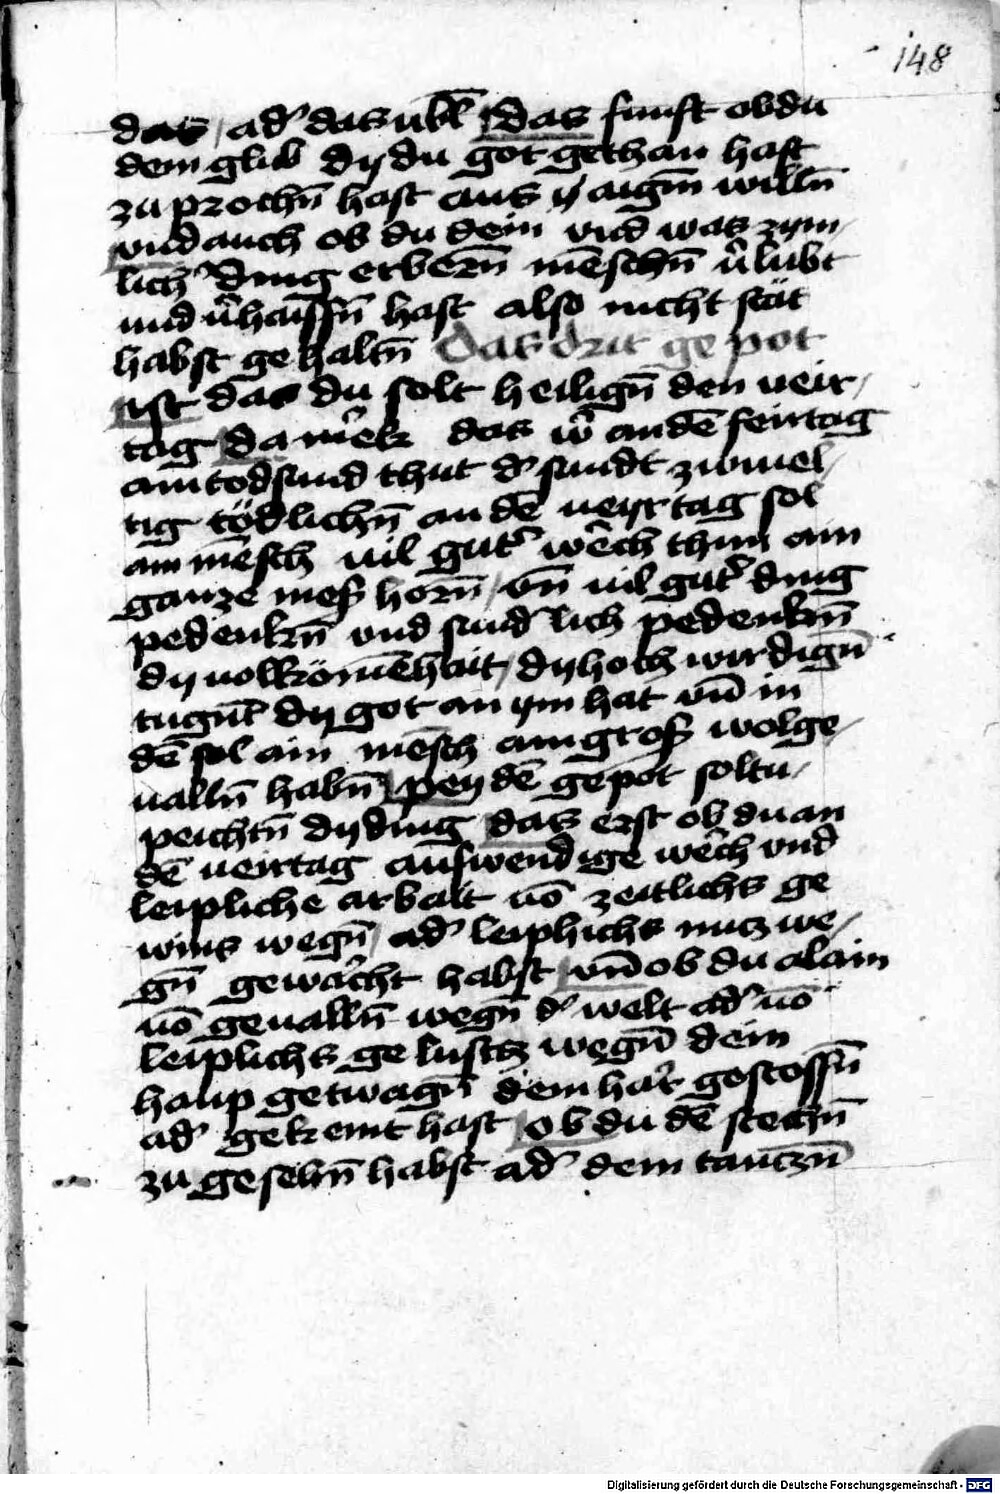 148
das / ad' das ubl das funft ob du
dem glub dy du got gethan hast
zu prochn̄ hast aus ÿ aigm̄ willn̄
vnd auch ob du dein vnd was zym¬
lich' ding erbern̄ mēschn̄ v'lubt
und v'haissn̄ hast also nicht stät
habst gehaltn̄ Das drit gepot
ist das du solt heilign̄ den veir¬
tag da m'ek das w' an dē feirtag
ain todsund thut d' sundt zwiuel¬
tig tödlichn̄ an dē veyrtag sol
ain mēsch vil gut' w'ch thun ain
ganze mess horn̄ / vn̄ vil gut' ding
pedenkn̄ vnd sund'lich pedenkn̄
dy volkömēhait / dy hoch wirdign̄
tugūt dy got an ym hat vn̄ in
dē sol ain mēsch ain gross wolge¬
valln̄ habn̄ pey dē gepot soltu
peichtn̄ dy ding das erst ob du an
dē veirtag auswendige w'ch vnd
leipliche arbait vō zeitlichs ge
wins wegn̄ / ad' leiplichs nutz we¬
gn̄ gewarcht habst vn̄ ob du alain
vō geualln̄ wegn̄ d' welt ad' vō
leiplichs gelustz wegn̄ dein
haup getwagn̄ dein har gestossn̄
ad' gekemt hast ob du dē stechn̄
zu gesehn̄ habst ad' dem tantzn̄
Digitalisierung gefördert durch die Deutsche Forschungsgemeinschaft - DFG